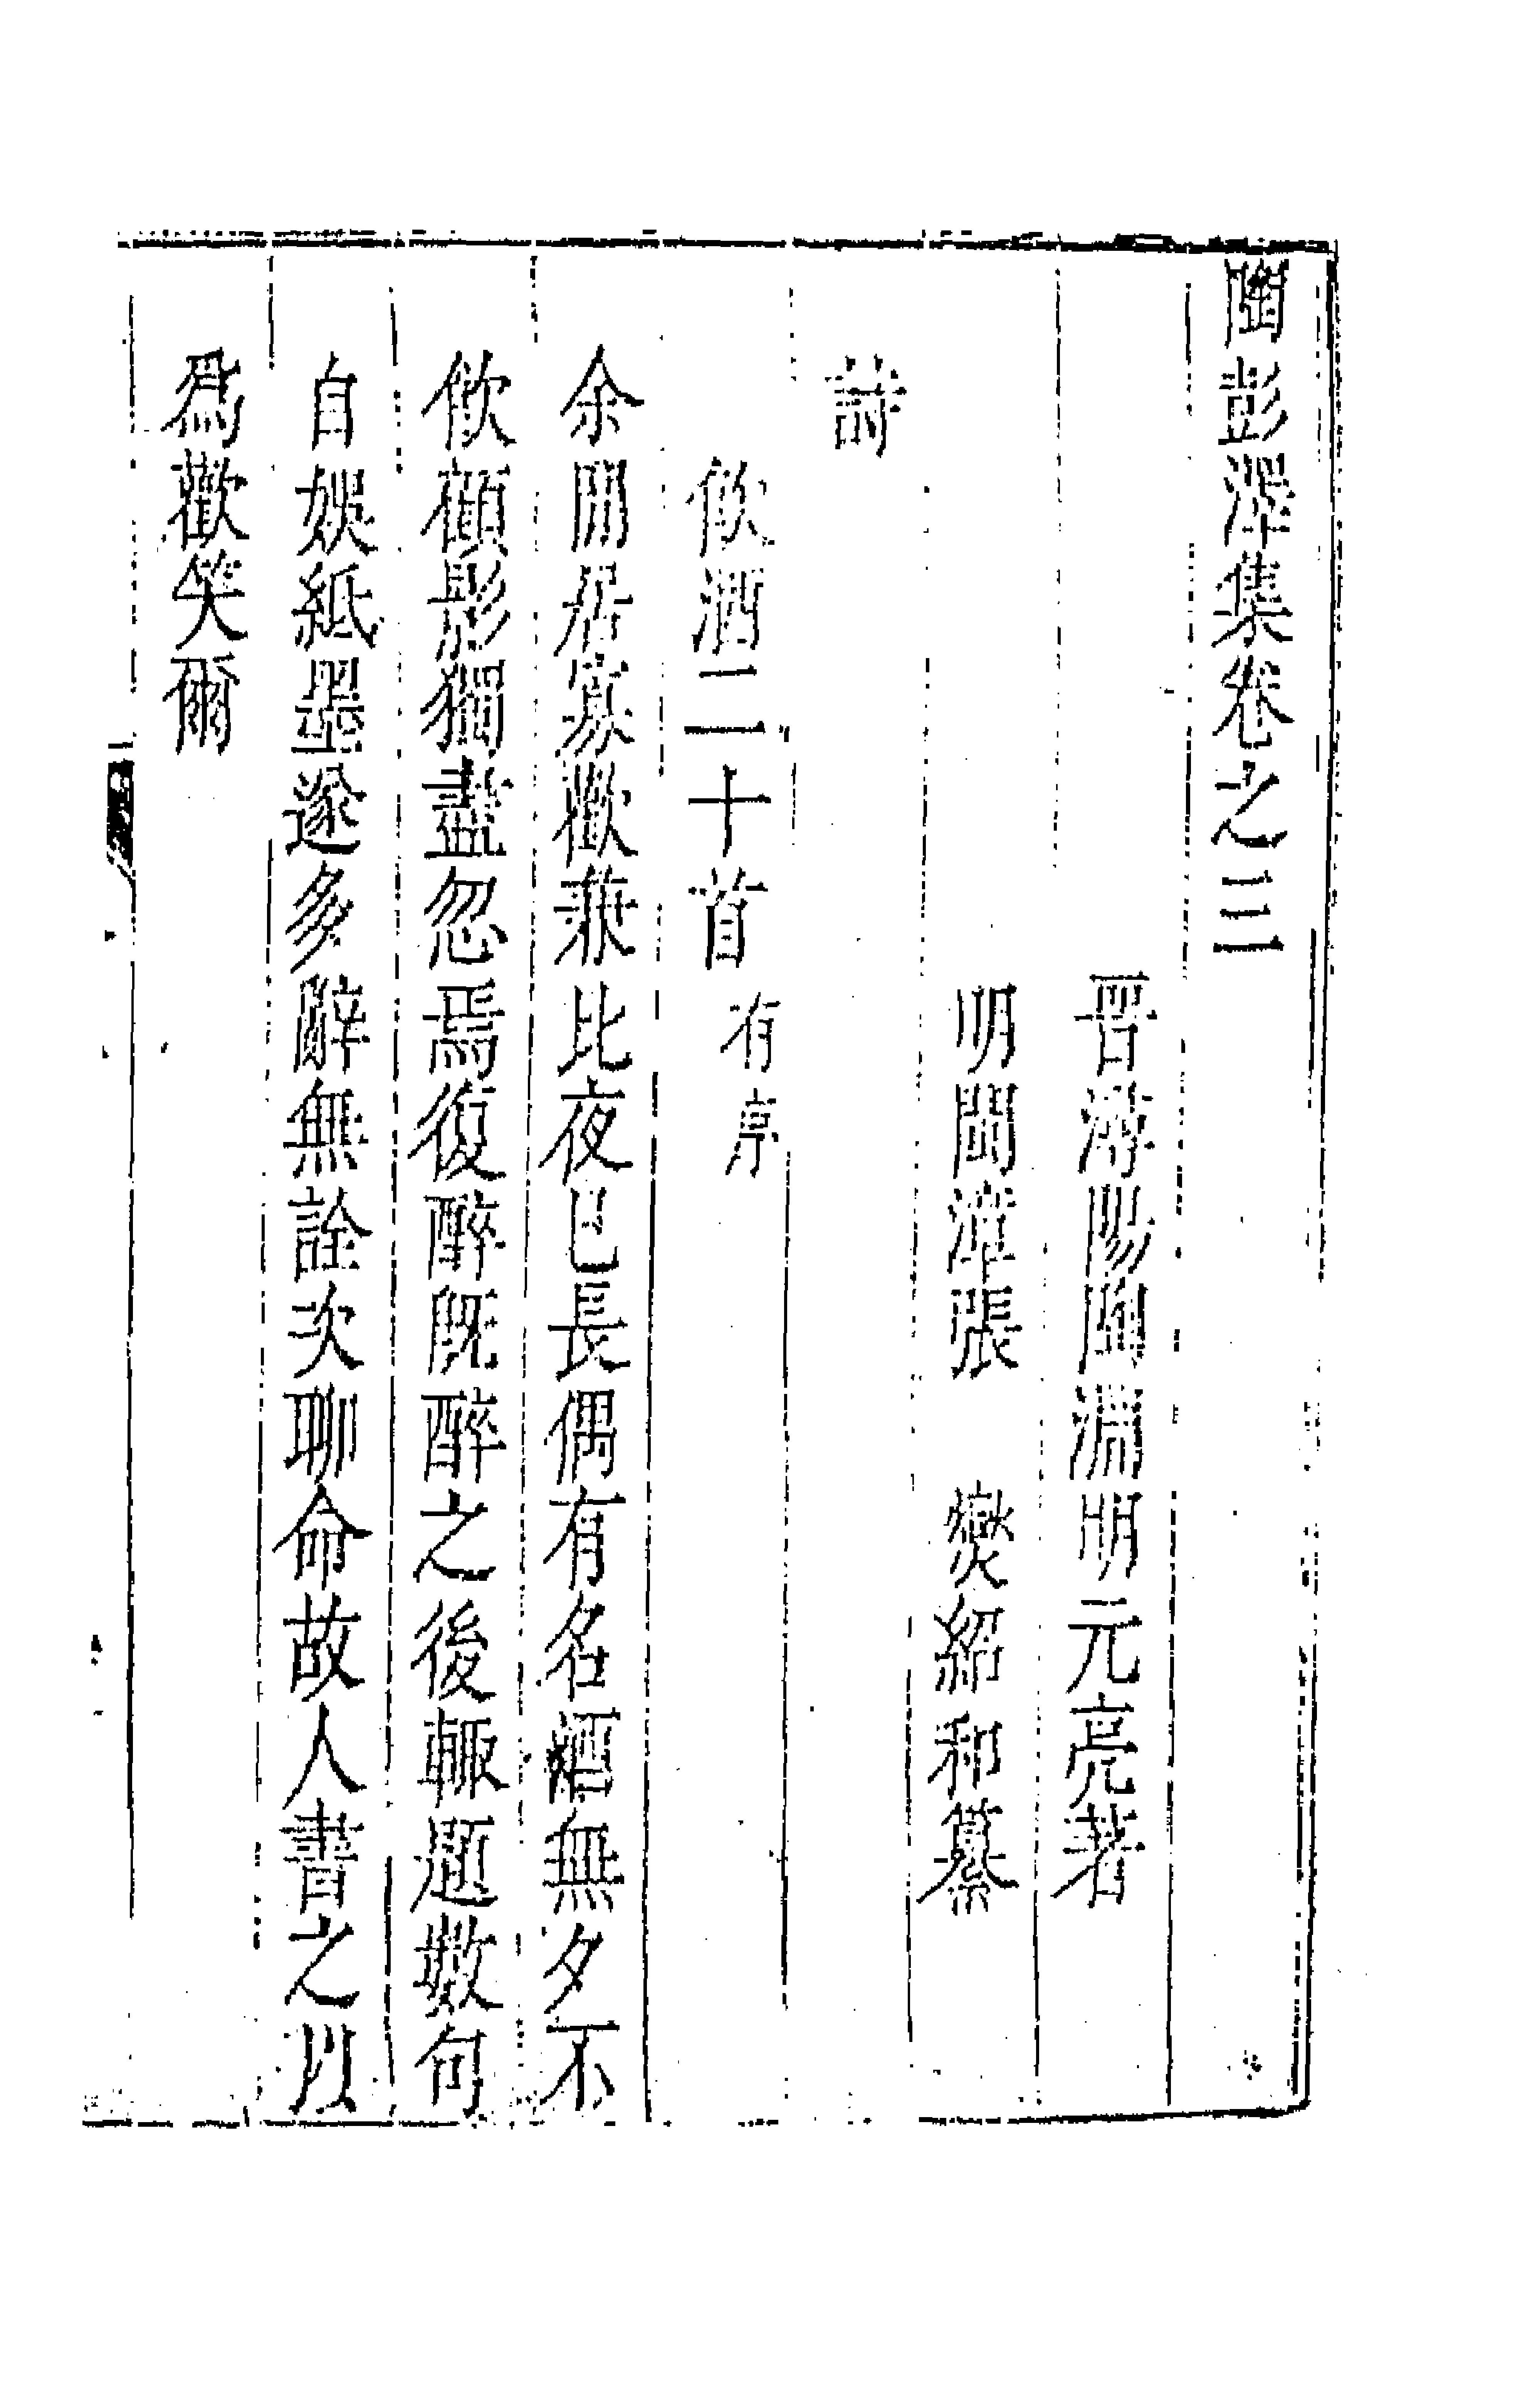 陶彭澤集卷之三
晉潯陽陶淵明元亮著
明閩漳張 燮紹和纂
詩
飲酒二十首有序
余閒居寡歡兼比夜已長偶有名酒無夕不
飲顧影獨盡忽焉復醉既醉之後輒題數句
自娛紙墨遂多辭無詮次聊命故人書之以
爲歡笑爾